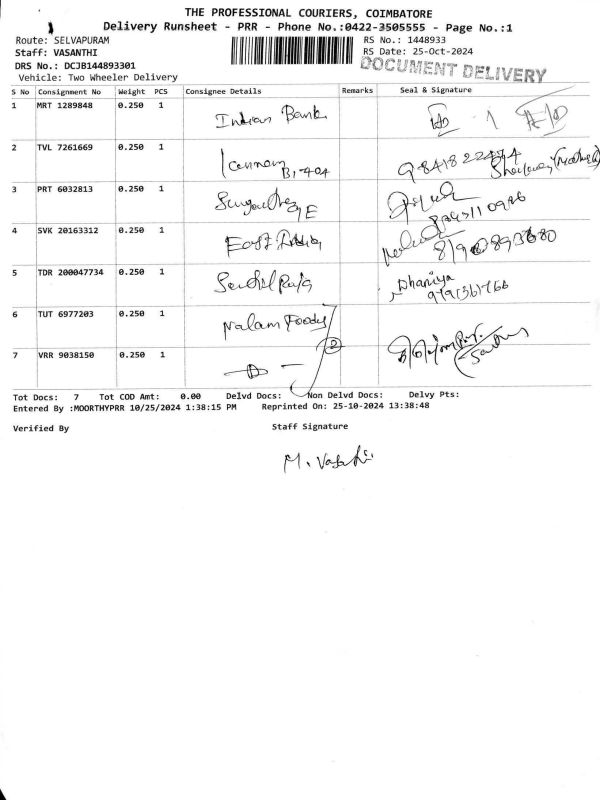 THE PROFESSIONAL COURIERS, COIMBATORE
Delivery Runsheet - PRR - Phone No.:0422-3505555 - Page No.:1
Route: SELVAPURAM
RS No.: 1448933
Staff: VASANTHI
RS Date: 25-Oct-2024
DRS No.: DCJB144893301
DOCUMENT DELIVERY
Vehicle: Two Wheeler Delivery
S No Consignment No Weight PCS Consignee Details Remarks Seal & Signature
1 MRT 1289848 0.250 1 Indian Bank
2 TVL 7261669 0.250 1 B1-404
3 PRT 6032813 0.250 1
4 SVK 20163312 0.250 1 East India
5 TDR 200047734 0.250 1 Dhaniya
6 TUT 6977203 0.250 1 Nalam Foods
7 VRR 9038150 0.250 1 2
Tot Docs: 7 Tot COD Amt: 0.00 Delvd Docs: Non Delvd Docs: Delvy Pts:
Entered By :MOORTHYPRR 10/25/2024 1:38:15 PM Reprinted On: 25-10-2024 13:38:48
Verified By Staff Signature
M. Vasanthi